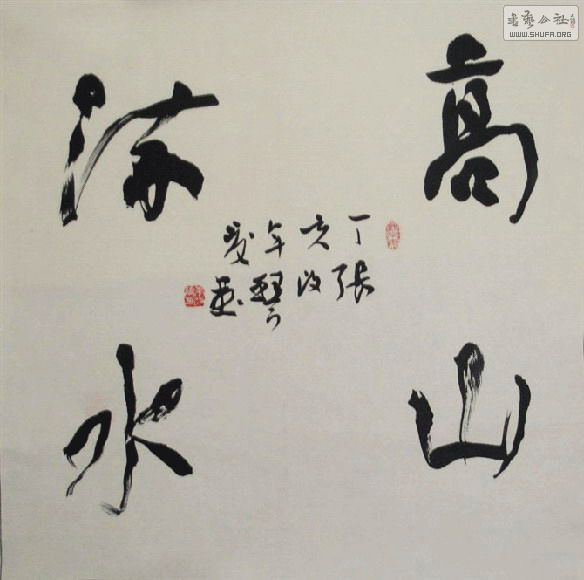 高山
流水
丁亥年夏
张改琴
书艺公社
WWW.SHUFA.ORG